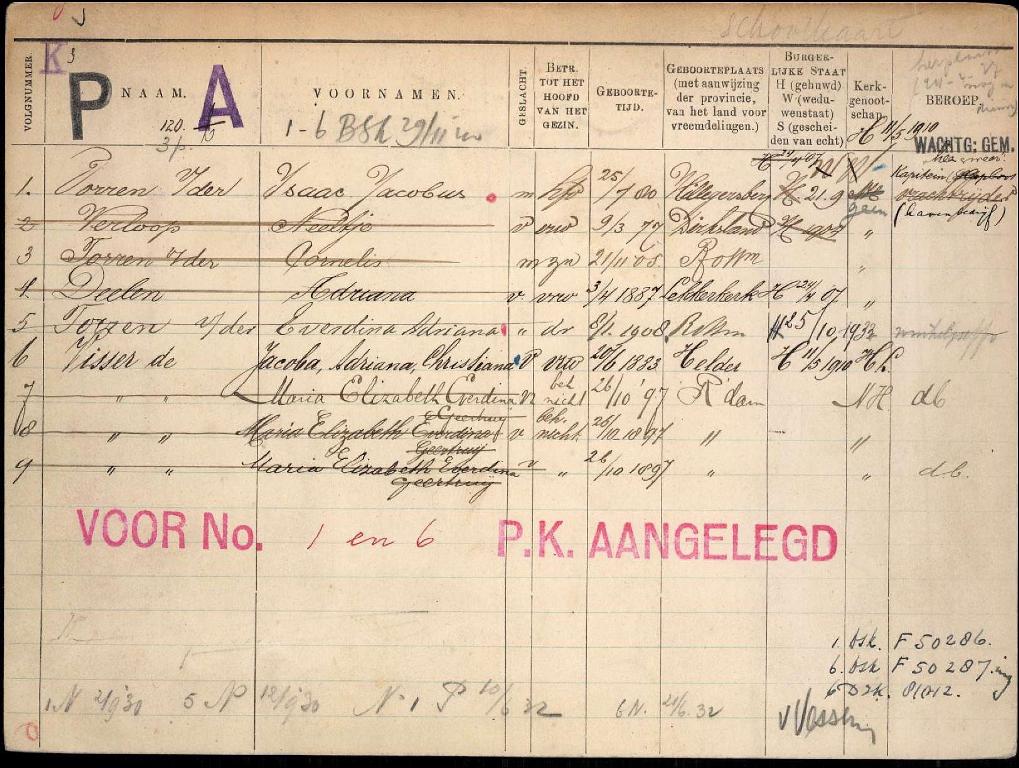 Schoolkaart
K 3
P A
VOLGNUMMER.
NAAM.
VOORNAMEN.
GESLACHT.
BETR. TOT HET HOOFD VAN HET GEZIN.
GEBOORTE-TIJD.
GEBOORTEPLAATS (met aanwijzing der provincie, van het land voor vreemdelingen.)
BURGER-LIJKE STAAT H (gehuwd) W (weduwenstaat) S (gescheiden van echt)
Kerk-genoot-schap.
BEROEP.
120.
3p.
1-6 BSK 29/11
H 11/5 1910
WACHTG: GEM.
H 24/4 07
1. Torren v/der Isaac Jacobus m hfd 25/7 80 Hillegersberg H 21.9 geen Kapitein vrachtrijder
(havenbedrijf)
2 Verloop Neeltje v vrw 9/3 77 Dirksland H 902 "
3 Torren v/der Cornelis m zn 21/11 05. Rottm "
4. Deelen Adriana v. vrw 3/4 1887 Lekkerkerk H 24/4 07 "
5 Torren v/der Everdina Adriana " dr 8/1. 1908. Rottm H 25/10, 1932
6 Visser de Jacoba, Adriana, Christiana v vrw 20/6 1883 Helder H 11/5 1910 H.
7 " " Maria Elizabeth Everdina v beh nicht 26/10 '97 R'dam NH db
Geertruij
8 " " Maria Elizabeth Everdina v beh. nicht. 26/10 1897 " — "
Geertruij
9 " " Maria Elizabeth Everdina " " 26/10 1897 " " d.b.
Geertruij
VOOR No. 1 en 6 P.K. AANGELEGD
1. bsk. F 50286.
6. bsk F 50287.
6 Dzk.
1 N 2/9 30 5 N 12/9 30 N-1 P 10/6 32 6 N. 21/6. 32